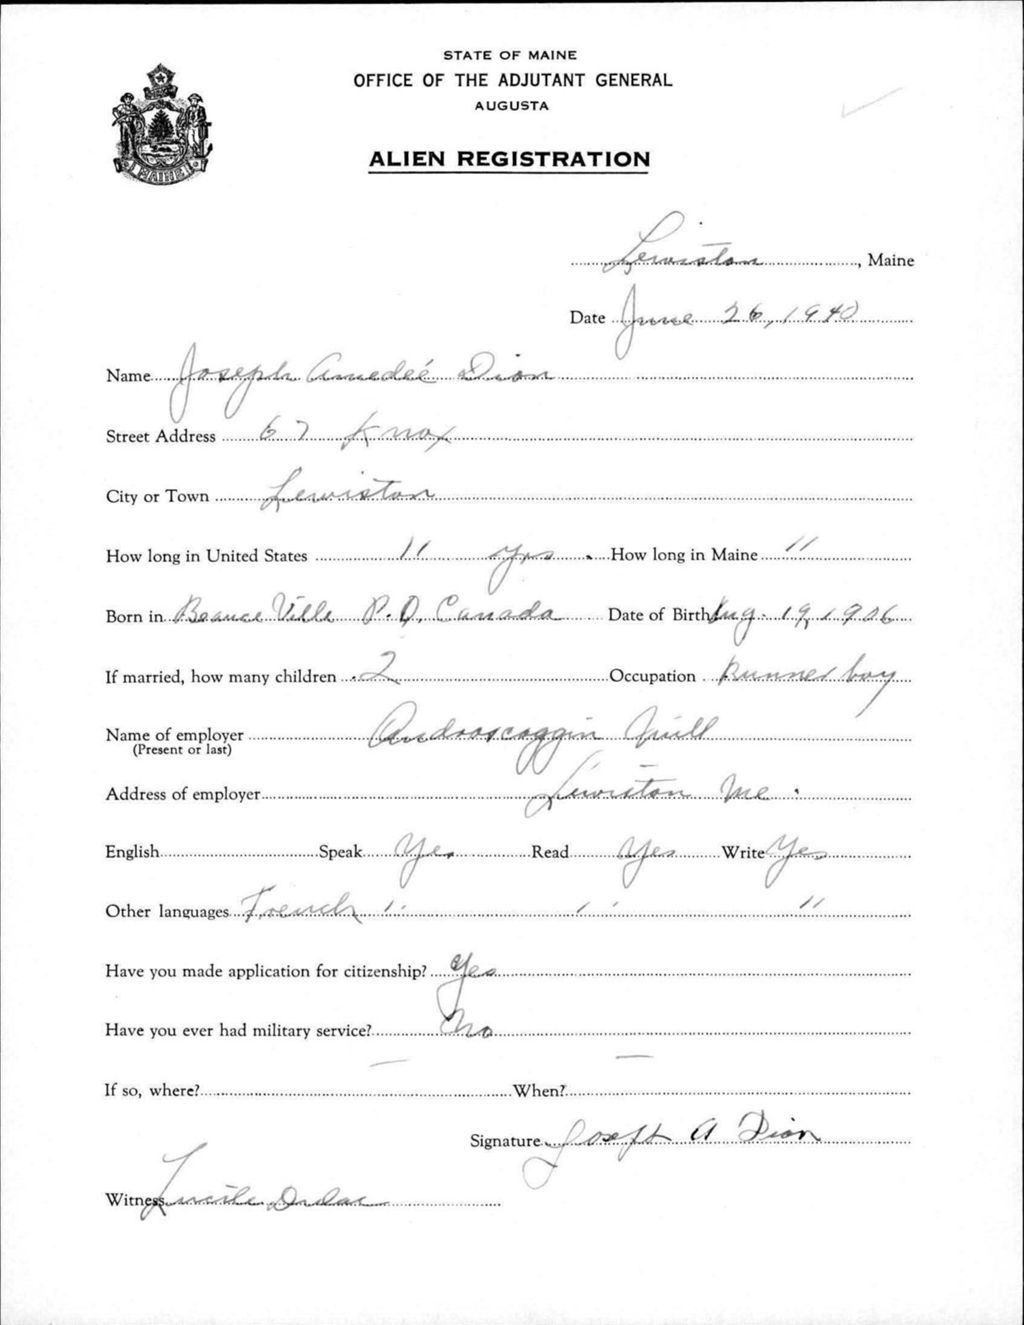 STATE OF MAINE
OFFICE OF THE ADJUTANT GENERAL
AUGUSTA
ALIEN REGISTRATION
MAINE
Lewiston, Maine
Date June 26, 1940
Name Joseph Amedeé Dion
Street Address 67 Knox
City or Town Lewiston
How long in United States 11 yrs. How long in Maine 11
Born in Beauce Ville P.Q. Canada Date of Birth Aug. 19, 1906
If married, how many children 2 Occupation Runner boy
Name of employer Androscoggin Mill
(Present or last)
Address of employer Lewiston Me.
English Speak Yes Read Yes Write Yes
Other languages French " " "
Have you made application for citizenship? Yes
Have you ever had military service? No
If so, where? — When? —
Signature Joseph A Dion
Witness Lucile